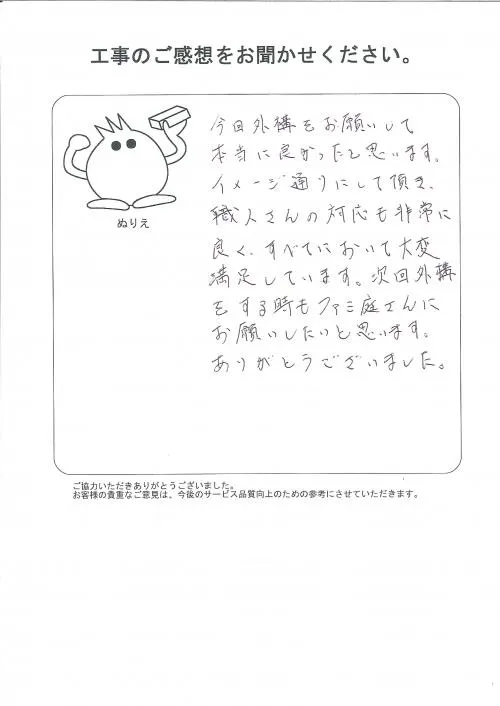 工事のご感想をお聞かせください。
ぬりえ
今回外構をお願いして
本当に良かったと思います。
イメージ通りにして頂き、
職人さんの対応も非常に
良く、すべてにおいて大変
満足しています。次回外構
をする時もファミ庭さんに
お願いしたいと思います。
ありがとうございました。
ご協力いただきありがとうございました。
お客様の貴重なご意見は、今後のサービス品質向上のための参考にさせていただきます。